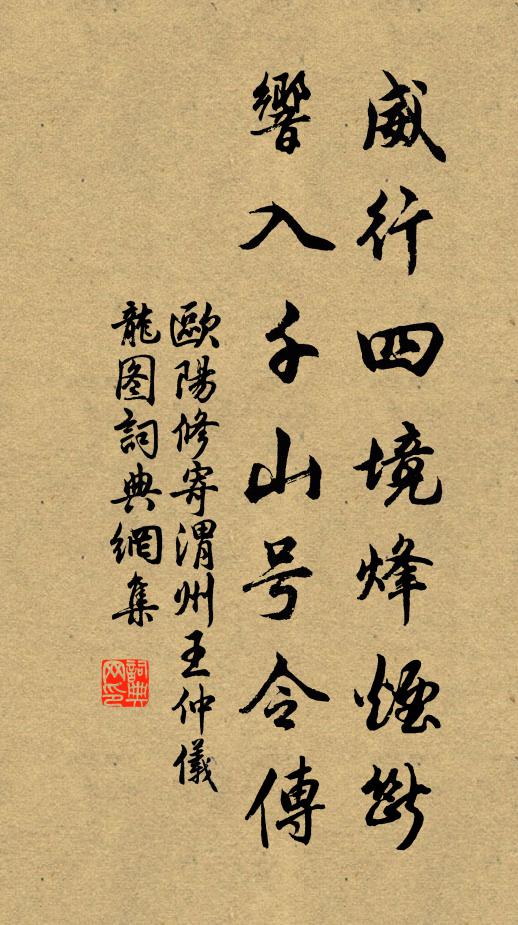 威行四境烽煙斷
響入千山号令傳
歐陽修寄渭州王仲儀
龍图詞典網集
詞典网印